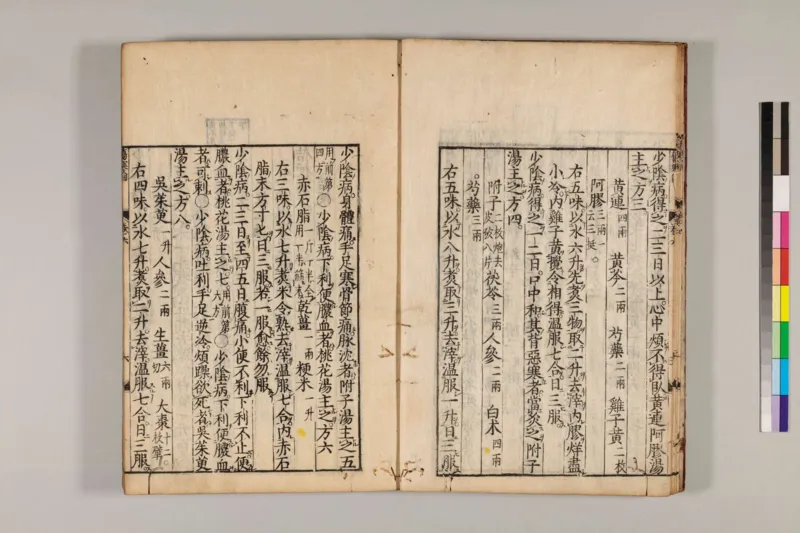 少陰病得之二三日以上心中煩不得臥黃連阿膠湯
主之方三
黃連四兩 黃芩二兩 芍藥二兩 雞子黃二枚
阿膠三兩一云三挺
右五味以水六升先煮三物取二升去滓內膠烊盡
小冷內雞子黃攪令相得溫服七合日三服
少陰病得之一二日口中和其背惡寒者當灸之附子
湯主之方四
附子二枚炮去皮破八片 茯苓三兩 人參二兩 白朮四兩
芍藥三兩
右五味以水八升煮取三升去滓溫服一升日三服
少陰病身體痛手足寒骨節痛脉沈者附子湯主之五
用前第四方○少陰病下利便膿血者桃花湯主之方六
赤石脂一斤一半全用一半篩末 乾薑一兩 粳米一升
右三味以水七升煮米令熟去滓溫服七合內赤石
脂末方寸匕日三服若一服愈餘勿服
少陰病二三日至四五日腹痛小便不利下利不止便
膿血者桃花湯主之七用前第六方○少陰病下利便膿血
者可刺○少陰病吐利手足逆冷煩躁欲死者吳茱萸
湯主之方八
吳茱萸一升 人參二兩 生薑六兩切 大棗十二枚擘
右四味以水七升煮取二升去滓溫服七合日三服